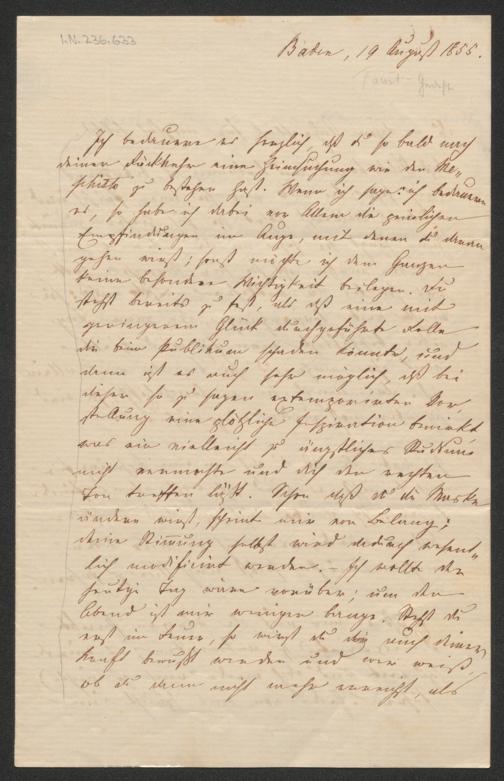 I.N. 236.633
Baden, 19 August 1855.
Faust-Gastsp.
Ich bedauere es herzlich, daß du so bald nach
deiner Rückkehr eine Heimsuchung wie den Me-
phisto zu bestehen hast. Wenn ich sage: ich bedauere
es, so habe ich dabei vor Allem die peinlichen
Empfindungen im Auge, mit denen du daran
gehen wirst; sonst möchte ich dem Ganzen
keine besondere Wichtigkeit beilegen. Du
stehst bereits zu fest, als daß eine mit
geringerem Glück durchgeführte Rolle
dir beim Publikum schaden könnte, und
dann ist es auch sehr möglich, daß bei
dieser so zu sagen extemporirten Vor
stellung eine plötzliche Inspiration bewirkt
was ein vielleicht zu ängstliches Studium
nicht vermochte und dich den rechten
Ton treffen läßt. Schon daß du die Maske
ändern wirst, scheint mir von Belang;
deine Stimmung selbst wird dadurch wesent-
lich modificirt werden. – Ich wollte der
heutige Tag wäre vorüber; um den
Abend ist mir weniger bange. Stehst du
erst im Feuer, so wirst du dir auch deiner
Kraft bewußt werden und wer weiß,
ob du dann nicht mehr erreichst, als